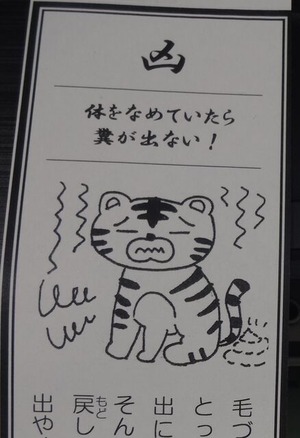 凶
体をなめていたら
糞が出ない！
毛づ
とっ
出に
そん
戻し
もど
出や